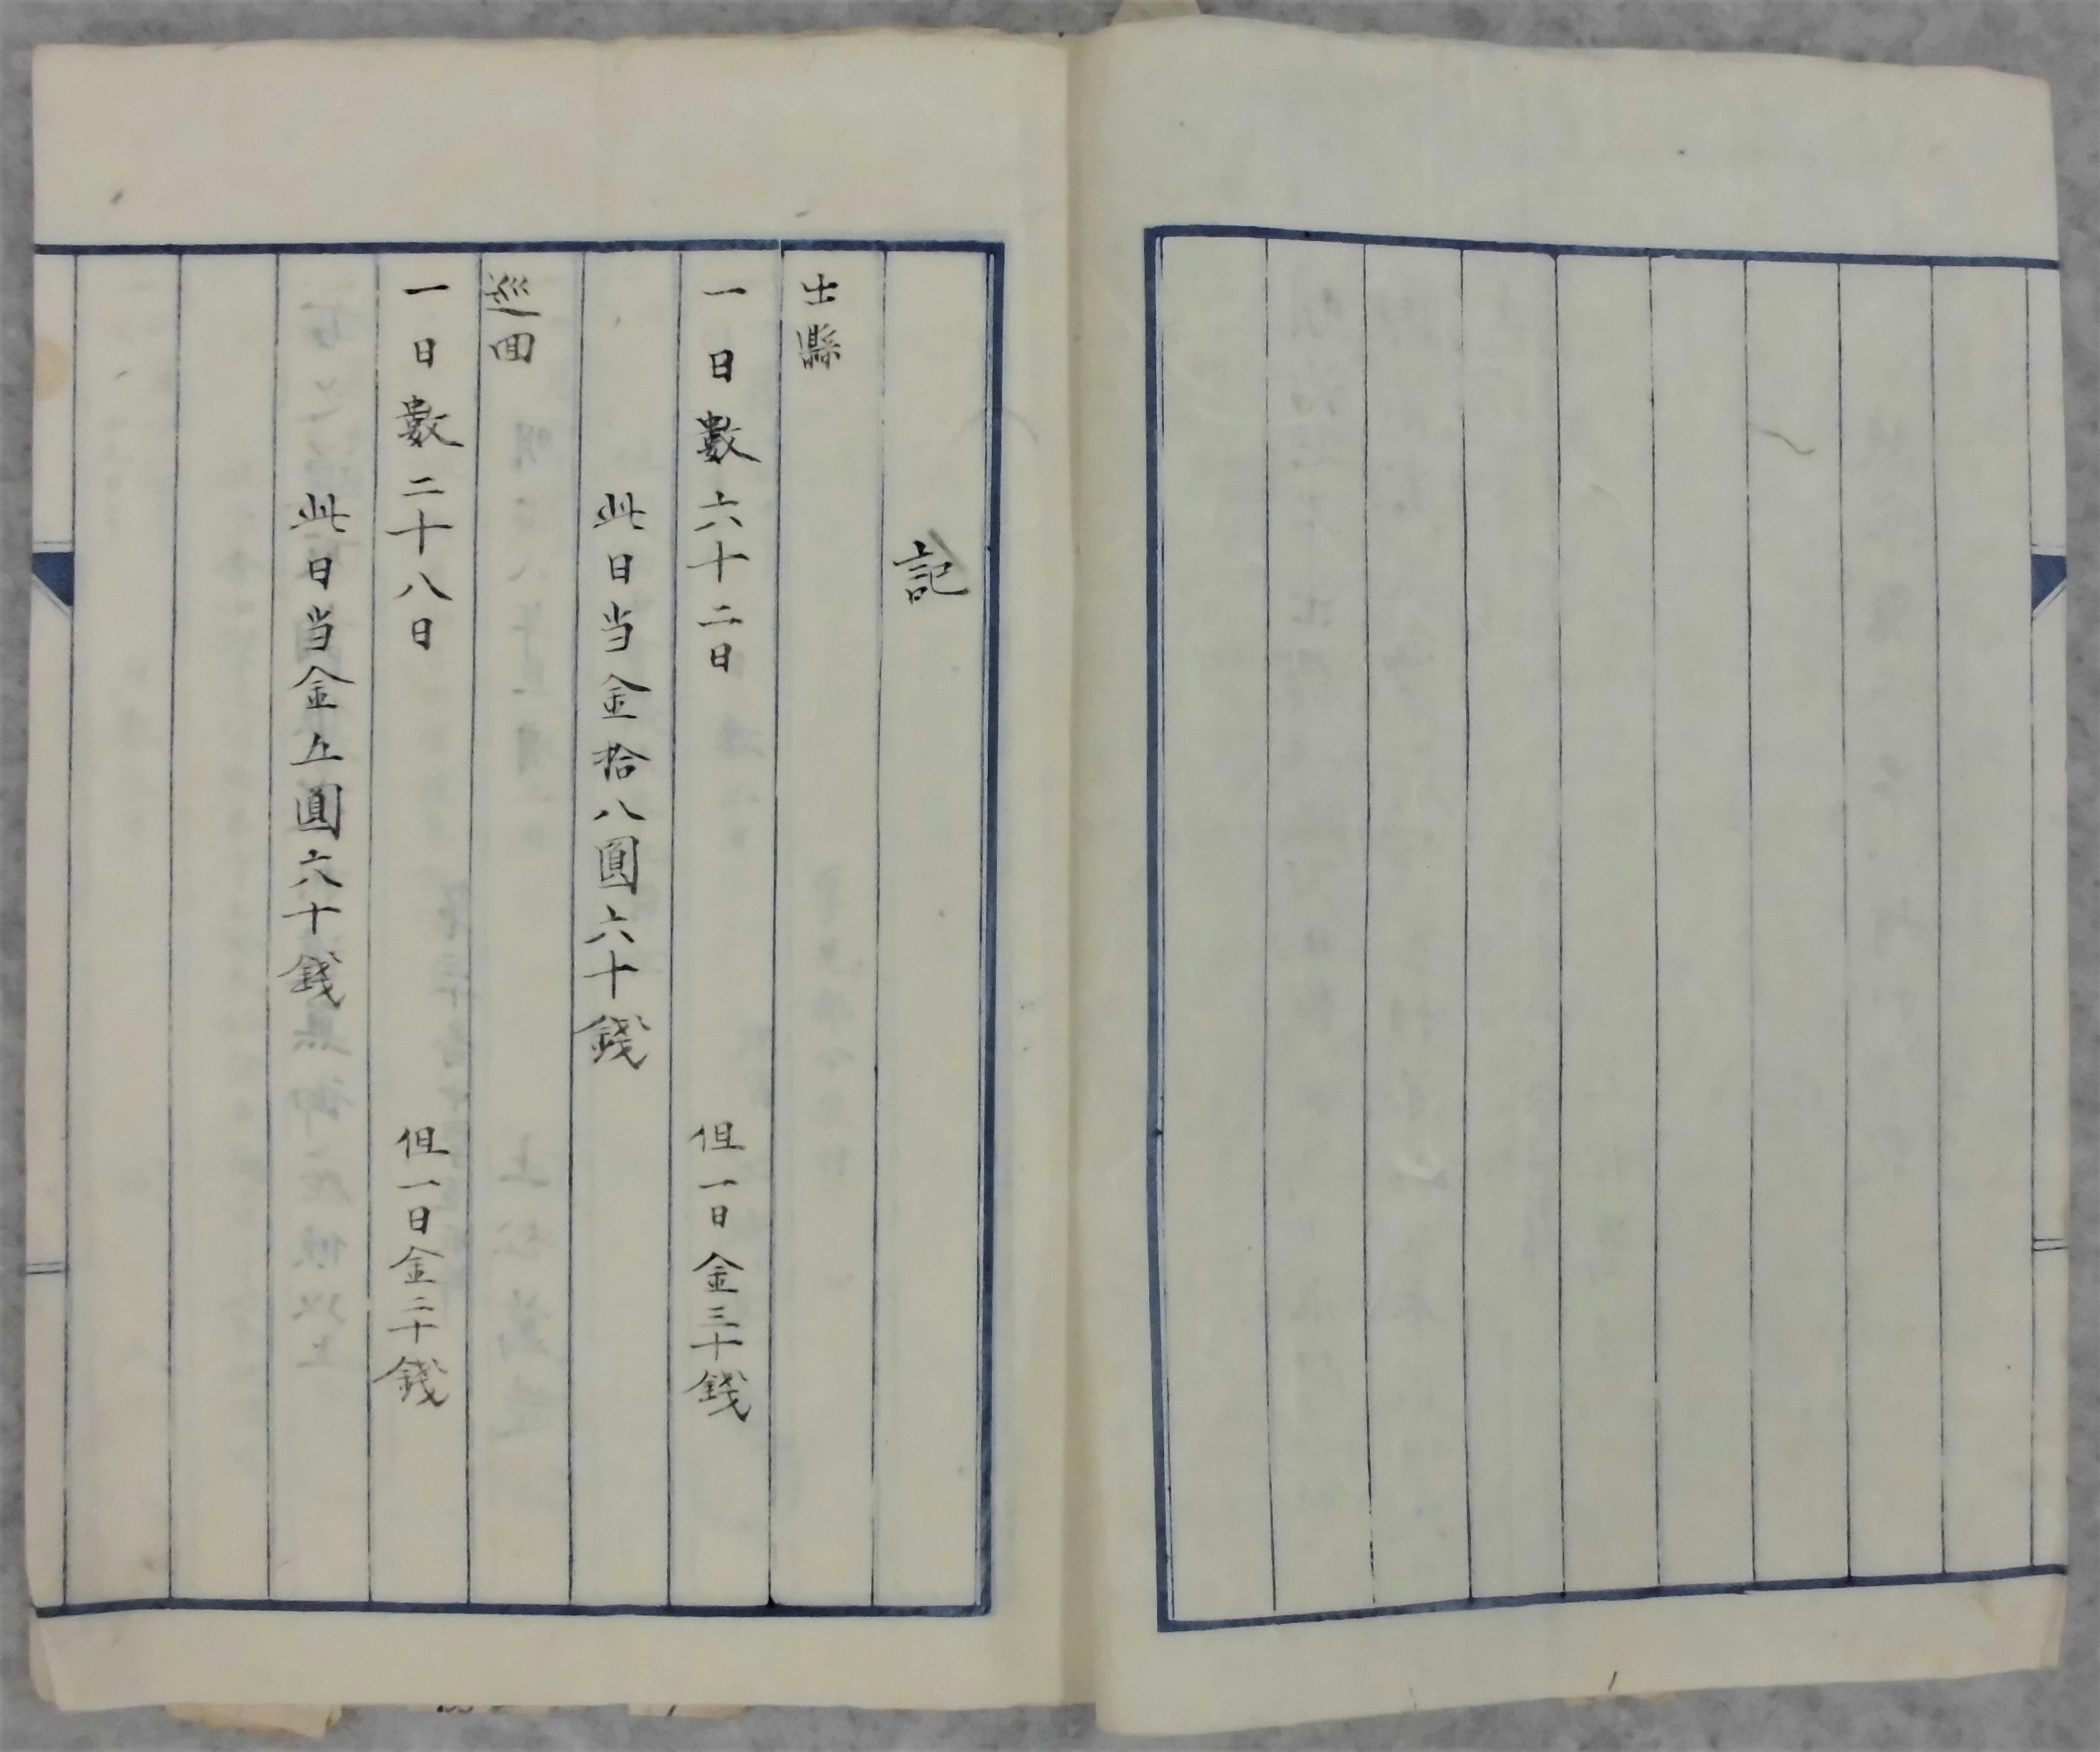 記
出縣
一日數六十二日 但一日金三十錢
此日当金拾八圓六十錢
巡回
一日數二十八日 但一日金二十錢
此日当金五圓六十錢